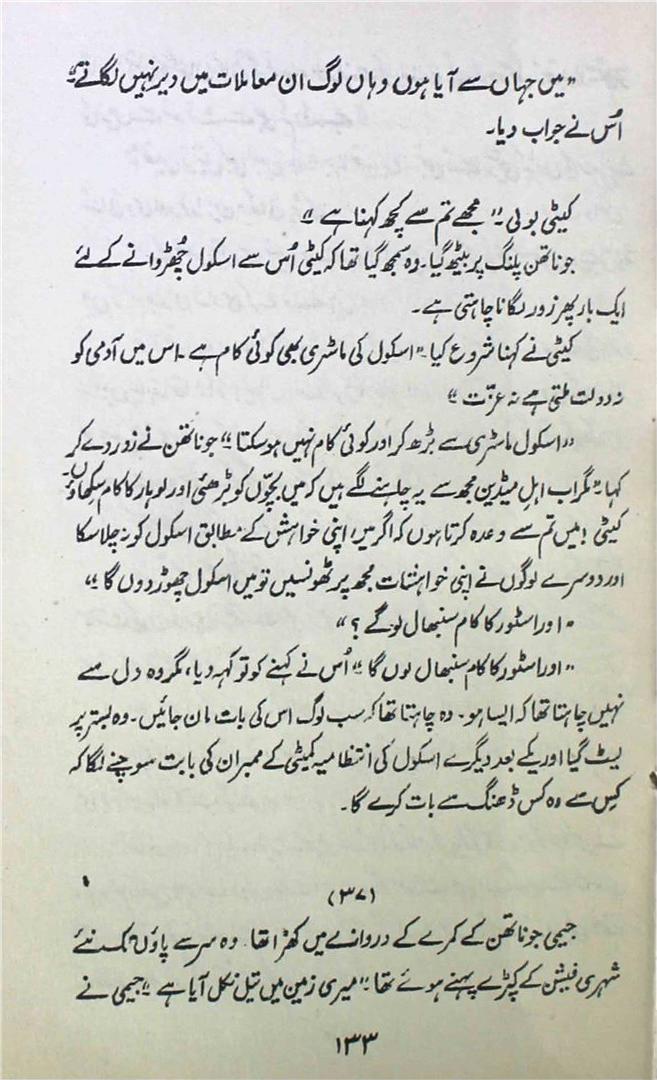 "میں جہاں سے آیا ہوں وہاں لوگ ان معاملات میں دیر نہیں لگاتے"
اُس نے جواب دیا۔
کیٹی بولی۔ "مجھے تم سے کچھ کہنا ہے"
جوناتھن پلنگ پر بیٹھ گیا۔ وہ سمجھ گیا تھا کہ کیٹی اُس سے اسکول چُھڑوانے کے لئے
ایک بار پھر زور لگانا چاہتی ہے۔
کیٹی نے کہنا شروع کیا۔ "اسکول کی ماسٹری بھی کوئی کام ہے۔ اس میں آدمی کو
نہ دولت ملتی ہے نہ عزّت"
"اسکول ماسٹری سے بڑھ کر اور کوئی کام نہیں ہو سکتا" جوناتھن نے زور دے کر
کہا۔ "مگر اب اہلِ میڈین مجھ سے یہ چاہنے لگے ہیں کہ میں بچّوں کو بڑھئی اور لوہار کا کام سکھاؤں۔
کیٹی! میں تم سے وعدہ کرتا ہوں کہ اگر میں اپنی خواہش کے مطابق اسکول کو نہ چلا سکا
اور دوسرے لوگوں نے اپنی خواہشات مجھ پر ٹھونسیں تو میں اسکول چھوڑ دوں گا"
"اور اسٹور کا کام سنبھال لو گے؟"
"اور اسٹور کا کام سنبھال لوں گا" اُس نے کہنے کو تو کہہ دیا، مگر وہ دل سے
نہیں چاہتا تھا کہ ایسا ہو۔ وہ چاہتا تھا کہ سب لوگ اس کی بات مان جائیں۔ وہ بستر پر
لیٹ گیا اور یکے بعد دیگرے اسکول کی انتظامیہ کمیٹی کے ممبران کی بابت سوچنے لگا کہ
کِس سے وہ کس ڈھنگ سے بات کرے گا۔
(۳۷)
جیمی جوناتھن کے کمرے کے دروازے میں کھڑا تھا۔ وہ سر سے پاؤں تک نئے
شہری فیشن کے کپڑے پہنے ہوئے تھا۔ "میری زمین میں تیل نکل آیا ہے" جیمی نے
۱۳۳